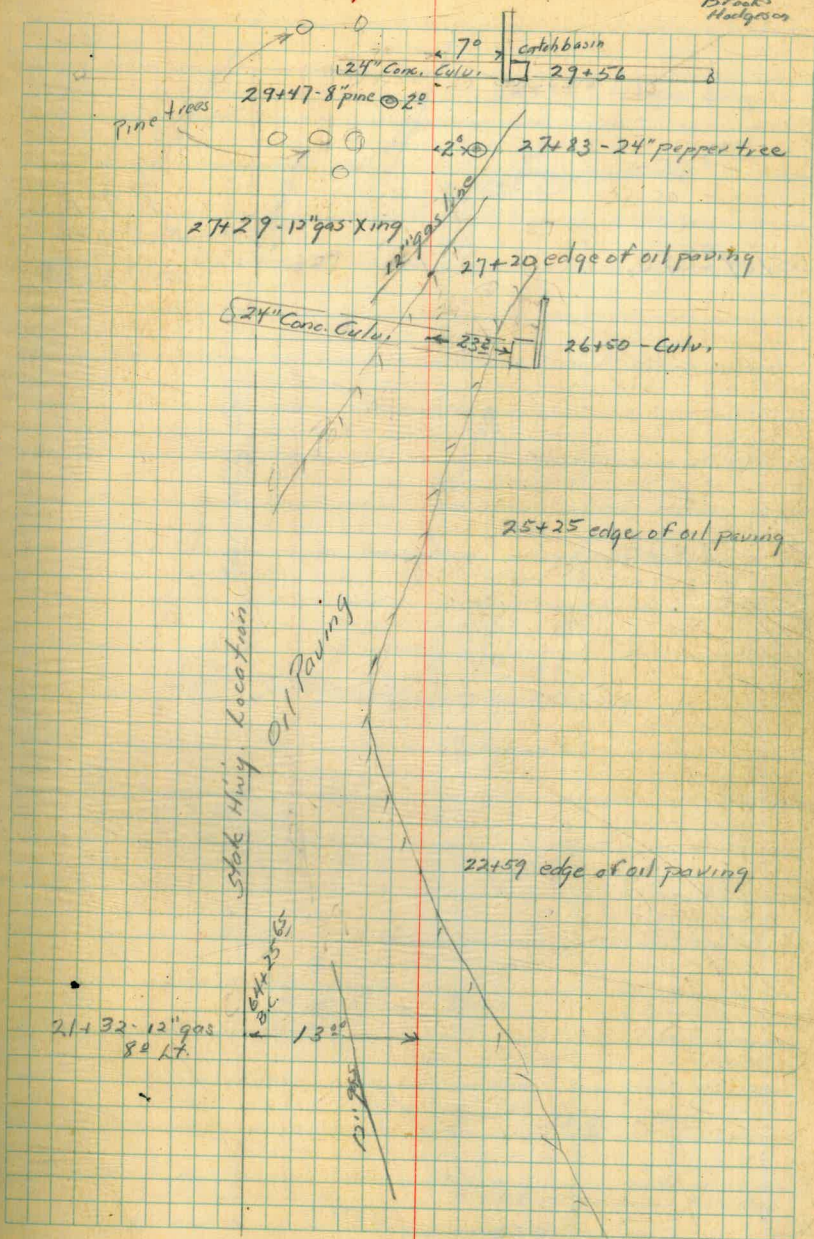 Brooks
Hodgeson
7⁰ catchbasin
24" Conc. Culv. 29+56
29+47-8" pine 2⁰
Pine trees
2⁰ 27+83-24" pepper tree
12" gas line
27+29-12" gas Xing
27+20 edge of oil paving
24" Conc. Culv.
23² 26+50-Culv.
25+25 edge of oil paving
Oil Paving
State Hiwy. Location
22+59 edge of oil paving
B.C.
21+32-12" gas
8⁰ Lt.
12" gas